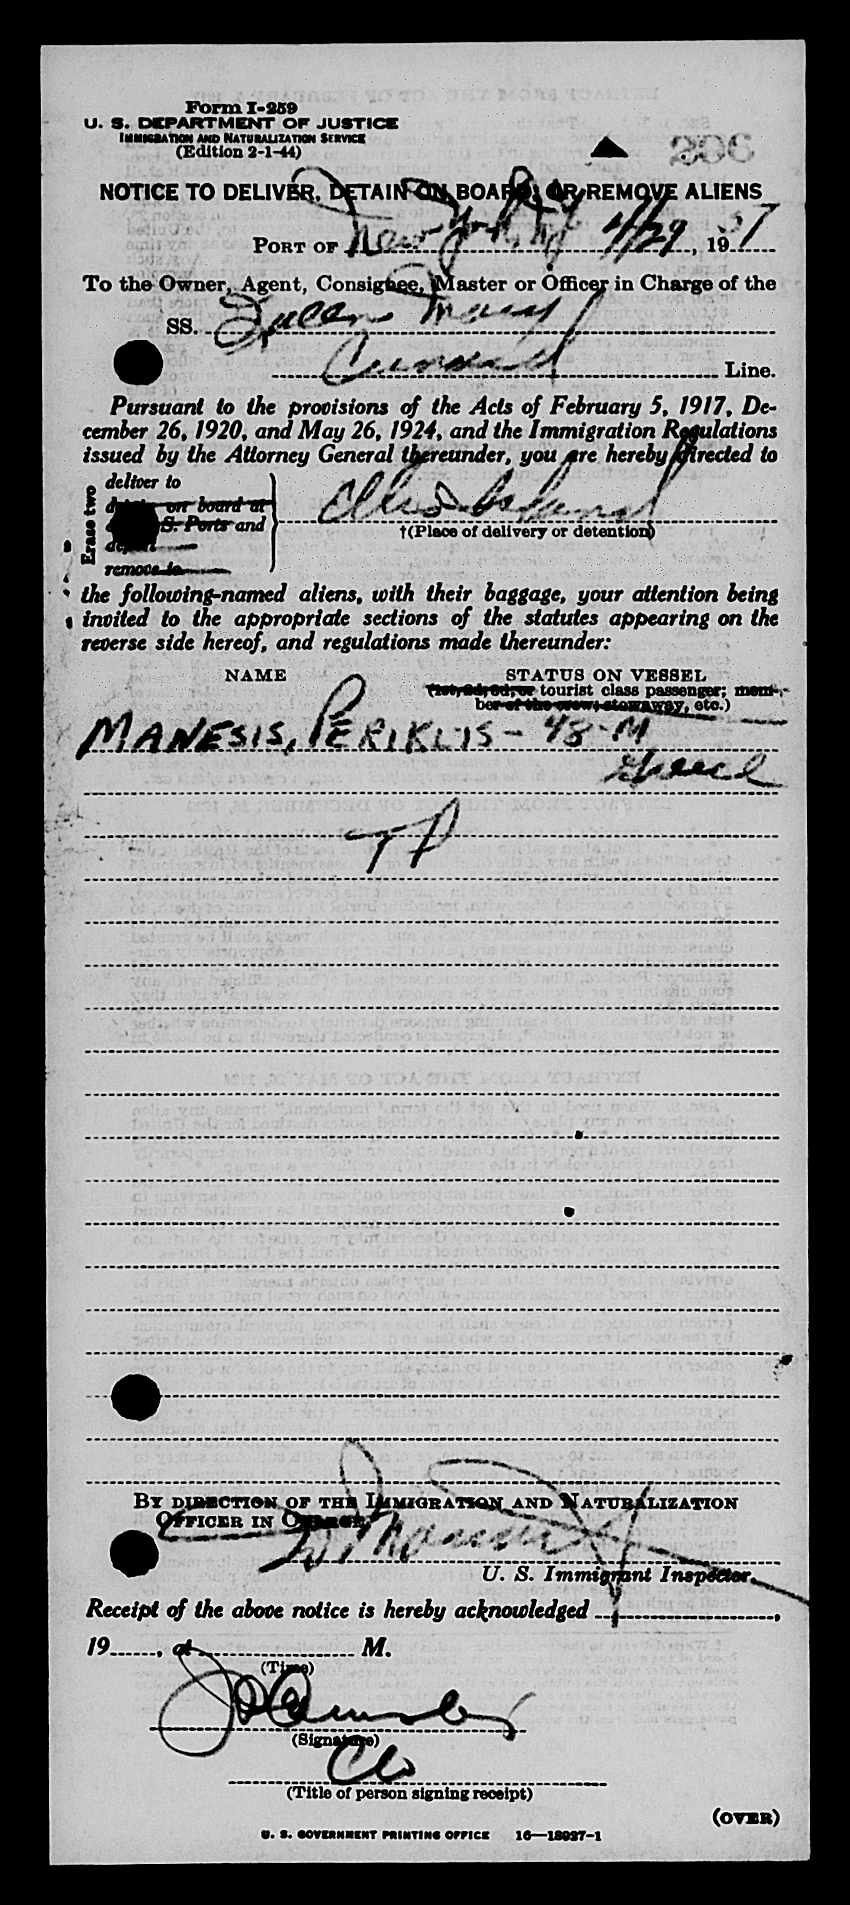 Form I-259
U. S. DEPARTMENT OF JUSTICE
IMMIGRATION AND NATURALIZATION SERVICE
(Edition 2-1-44)
206
NOTICE TO DELIVER, DETAIN ON BOARD, OR REMOVE ALIENS
PORT OF New York, NY 4/29, 1957
To the Owner, Agent, Consignee, Master or Officer in Charge of the
SS. Queen Mary
Cunard Line.
Pursuant to the provisions of the Acts of February 5, 1917, De-
cember 26, 1920, and May 26, 1924, and the Immigration Regulations
issued by the Attorney General thereunder, you are hereby directed to
Erase two
deliver to
on board at
S. Ports and
deport
remove to
Ellis Island
†(Place of delivery or detention)
the following-named aliens, with their baggage, your attention being
invited to the appropriate sections of the statutes appearing on the
reverse side hereof, and regulations made thereunder:
NAME STATUS ON VESSEL
(1st, 2d, 3d, or tourist class passenger; mem-
ber of the crew, stowaway, etc.)
MANESIS, PERIKLIS - 48-M
Greece
TP
BY DIRECTION OF THE IMMIGRATION AND NATURALIZATION
OFFICER IN CHARGE.
U. S. Immigrant Inspector.
Receipt of the above notice is hereby acknowledged ,
19 , at M.
(Time)
(Signature)
(Title of person signing receipt)
(OVER)
U. S. GOVERNMENT PRINTING OFFICE 16—18937-1